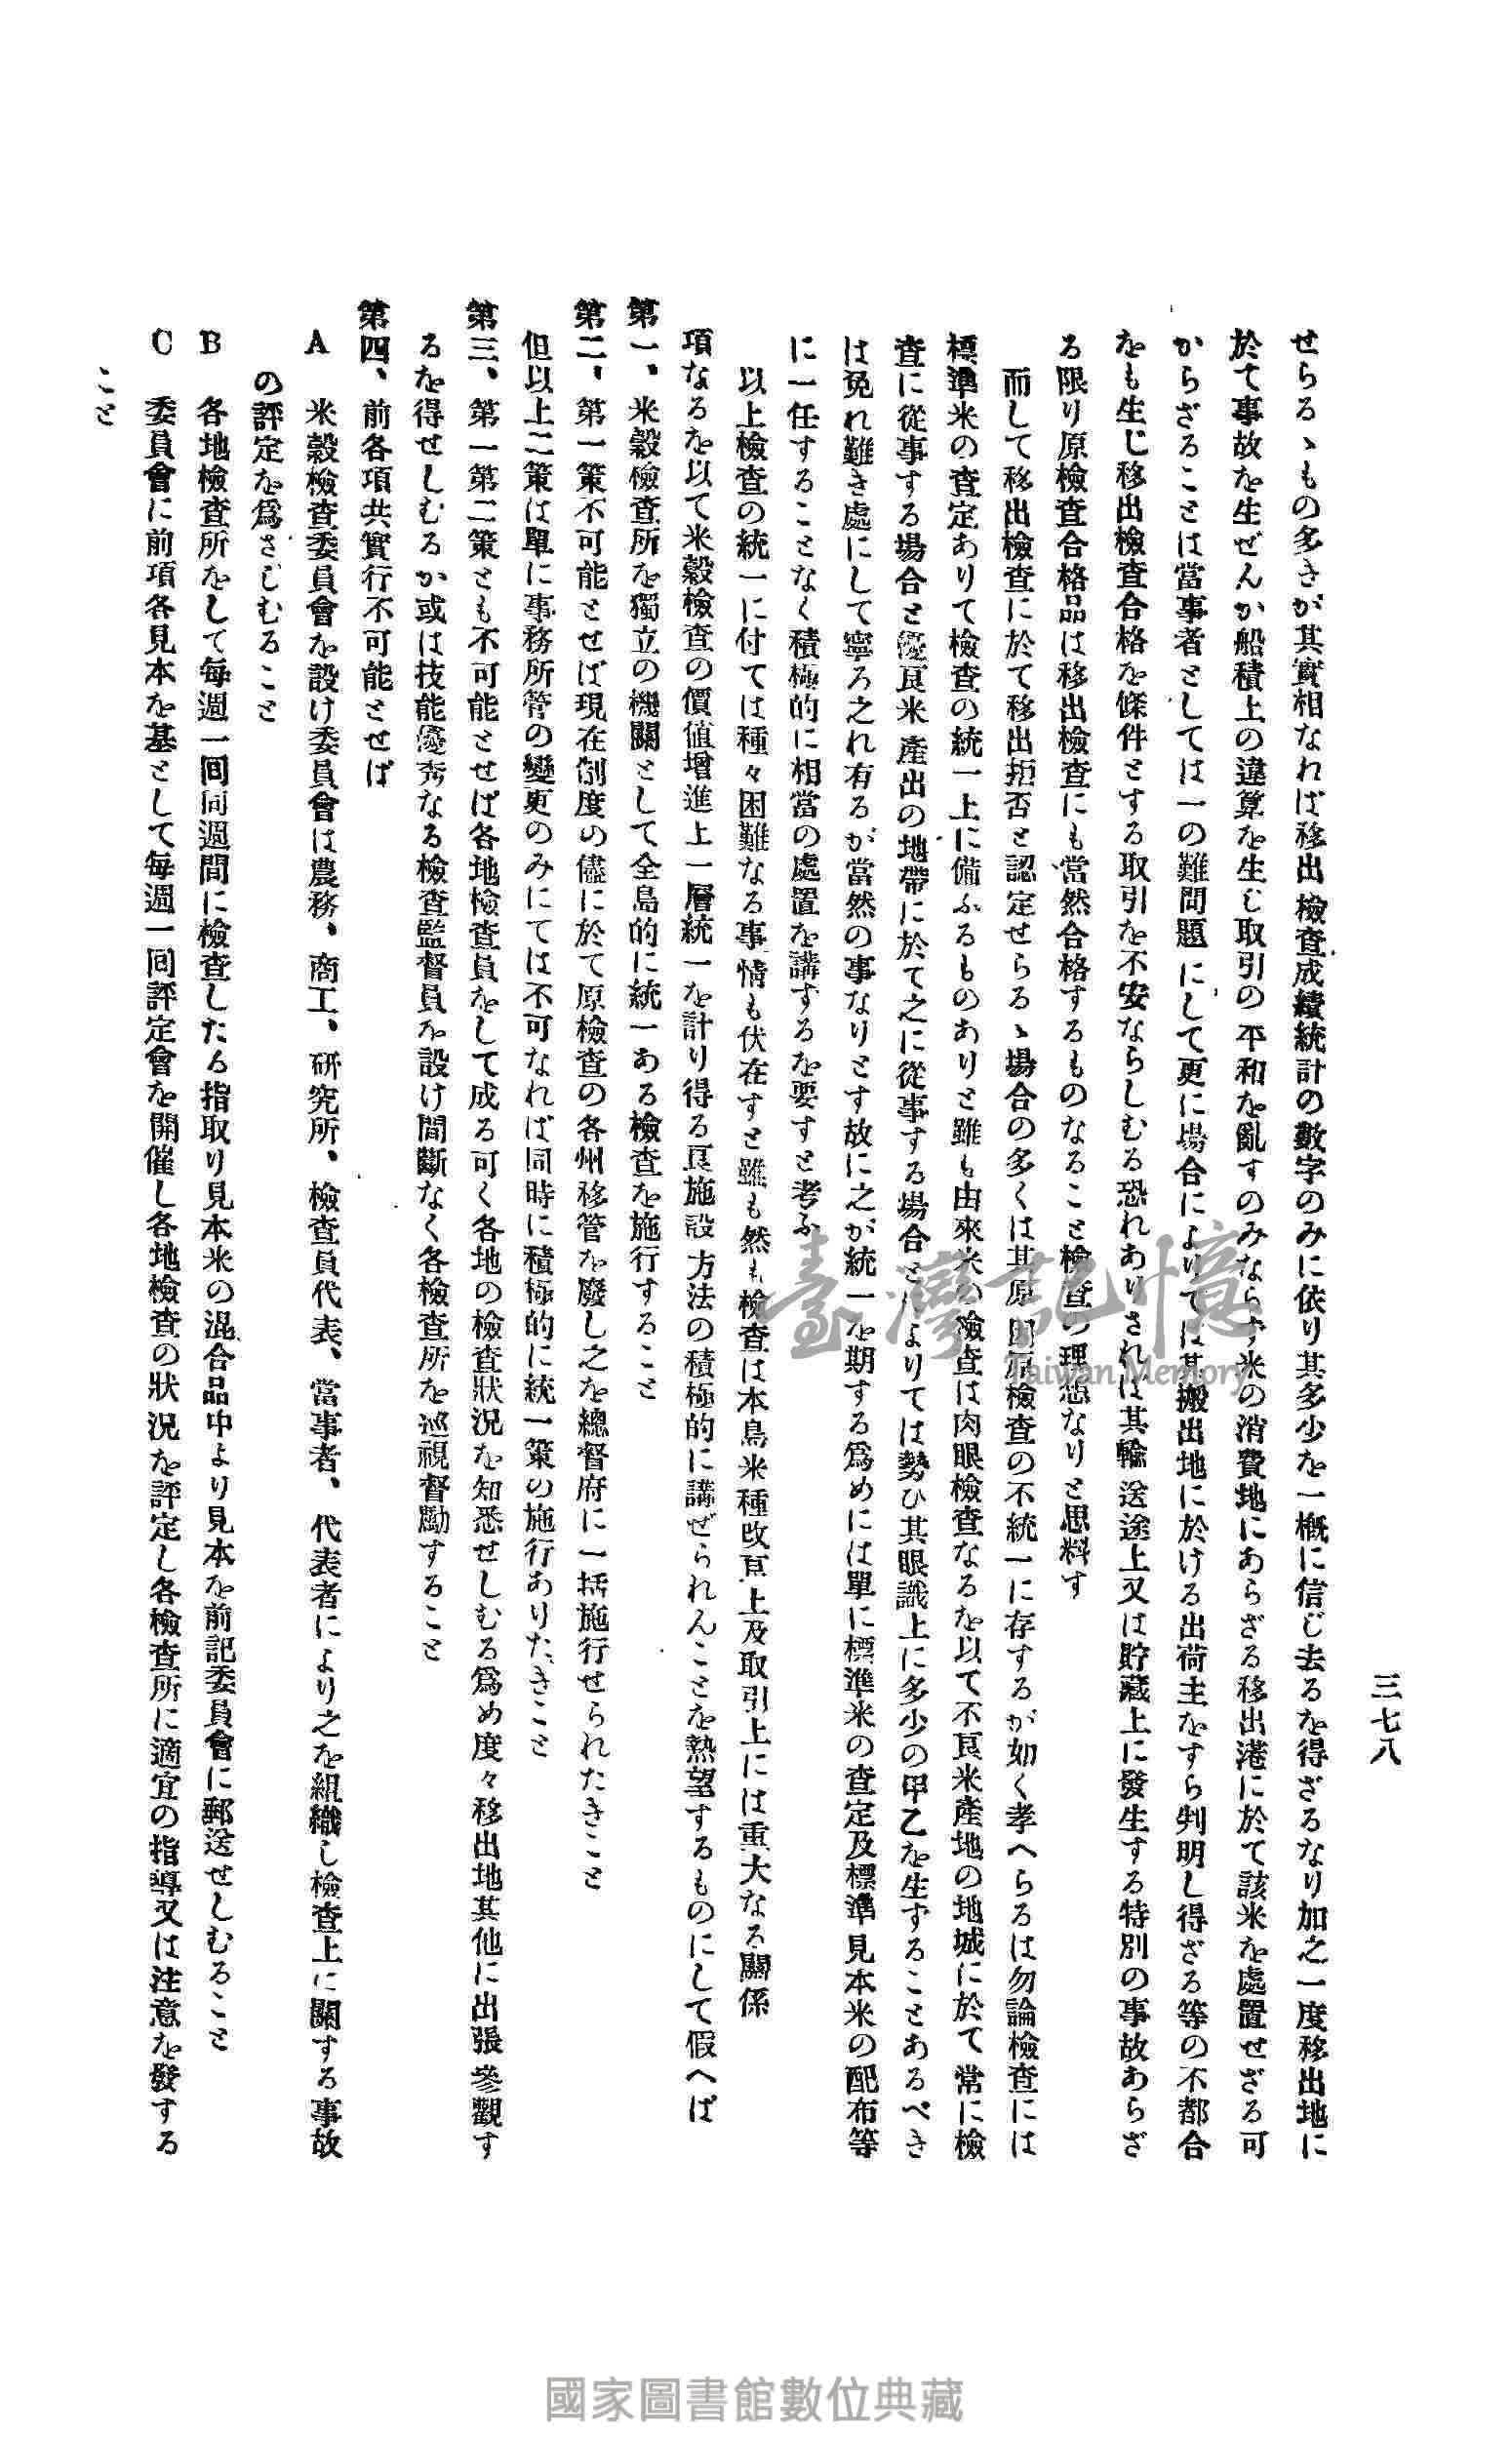 三七八
せらるゝもの多きが其實相なれば移出檢査成績統計の數字のみに依り其多少を一槪に信じ去るを得ざるなり加之一度移出地に
於て事故を生ぜんか船積上の違算を生じ取引の平和を亂すのみならず米の消費地にあらざる移出港に於て該米を處置せざる可
からざることは當事者としては一の難問題にして更に場合によりては其搬出地に於ける出荷主をすら判明し得ざる等の不都合
をも生じ移出檢査合格を條件とする取引を不安ならしむる恐れありされば其輸送途上又は貯藏上に發生する特別の事故あらざ
る限り原檢査合格品は移出檢査にも當然合格するものなること檢査の理想なりと思料す
而して移出檢査に於て移出拒否と認定せらるゝ場合の多くは其原因原檢査の不統一に存するが如く考へらるは勿論檢査には
標準米の査定ありて檢査の統一上に備ふるものありと雖も由來米の檢査は肉眼檢査なるを以て不良米產地の地域に於て常に檢
査に從事する場合と優良米產出の地帶に於て之に從事する場合とによりては勢ひ其眼識上に多少の甲乙を生ずることあるべき
は免れ難き處にして寧ろ之れ有るが當然の事なりとす故に之が統一を期する爲めには單に標準米の査定及標準見本米の配布等
に一任することなく積極的に相當の處置を講ずるを要すと考ふ
以上檢査の統一に付ては種々困難なる事情も伏在すと雖も然も檢査は本島米種改良上及取引上には重大なる關係
項なるを以て米穀檢査の價値增進上一層統一を計り得る良施設方法の積極的に講ぜられんことを熱望するものにして假へば
第一、米穀檢査所を獨立の機關として全島的に統一ある檢査を施行すること
第二、第一策不可能とせば現在制度の儘に於て原檢査の各州移管を廢し之を總督府に一括施行せられたきこと
但以上二策は單に事務所管の變更のみにては不可なれば同時に積極的に統一策の施行ありたきこと
第三、第一第二策とも不可能とせば各地檢査員をして成る可く各地の檢査狀況を知悉せしむる爲め度々移出地其他に出張參觀す
るを得せしむるか或は技能優秀なる檢査監督員を設け間斷なく各檢査所を巡視督勵すること
第四、前各項共實行不可能とせば
A 米穀檢査委員會を設け委員會は農務、商工、硏究所、檢査員代表、當事者、代表者により之を組織し檢査上に關する事故
の評定を爲さじむること
B 各地檢査所をして每週一回同週間に檢査したる指取り見本米の混合品中より見本を前記委員會に郵送せしむること
C 委員會に前項各見本を基として每週一回評定會を開催し各地檢査の狀況を評定し各檢査所に適宜の指導又は注意を發する
こと
臺灣記憶
Taiwan Memory
國家圖書館數位典藏